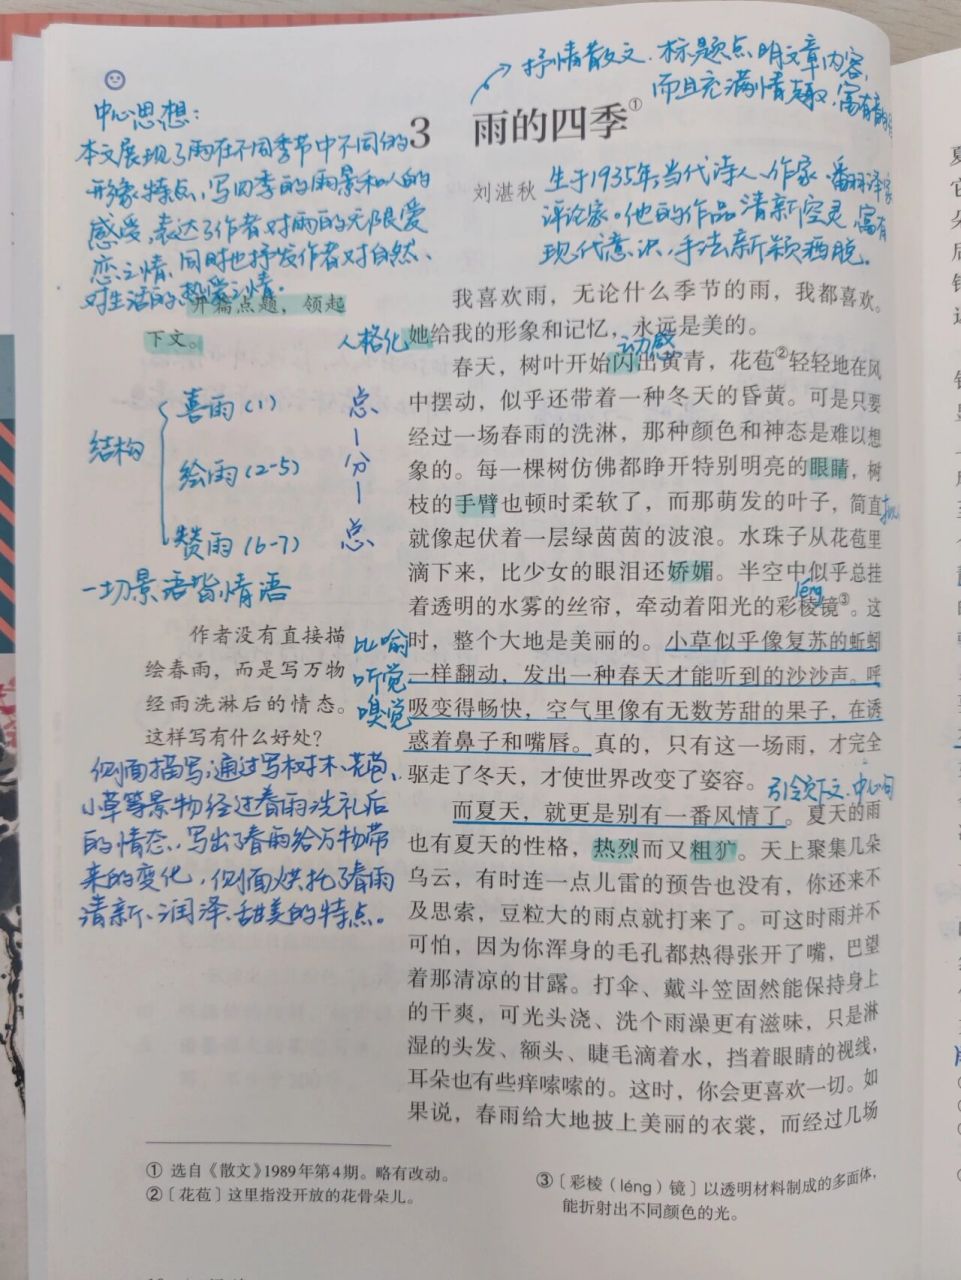 抒情散文.标题点明文章内容,
而且充满情趣,富有
3 雨的四季①
刘湛秋
生于1935年,当代诗人、作家、翻译家
评论家。他的作品清新空灵,富有
现代意识,手法新颖洒脱。
中心思想:
本文展现了雨在不同季节中不同的
形象特点,写四季的雨景和人的
感受,表达了作者对雨的无限爱
恋之情,同时也抒发作者对自然、
对生活的热爱之情。
开篇点题,领起
下文。
结构
喜雨(1) 总
绘雨(2-5) 分
赞雨(6-7) 总
一切景语皆情语
作者没有直接描
绘春雨,而是写万物
经雨洗淋后的情态。
这样写有什么好处?
侧面描写,通过写树木、花苞、
小草等景物经过春雨洗礼后
的情态,写出了春雨给万物带
来的变化,侧面烘托了春雨
清新、润泽、甜美的特点。
我喜欢雨,无论什么季节的雨,我都喜欢。
人格化
她给我的形象和记忆,永远是美的。
动感
春天,树叶开始闪出黄青,花苞②轻轻地在风
中摆动,似乎还带着一种冬天的昏黄。可是只要
经过一场春雨的洗淋,那种颜色和神态是难以想
象的。每一棵树仿佛都睁开特别明亮的眼睛,树
枝的手臂也顿时柔软了,而那萌发的叶子,简直
就像起伏着一层绿茵茵的波浪。水珠子从花苞里
滴下来,比少女的眼泪还娇媚。半空中似乎总挂
léng
着透明的水雾的丝帘,牵动着阳光的彩棱镜③。这
时,整个大地是美丽的。小草似乎像复苏的蚯蚓
比喻
一样翻动,发出一种春天才能听到的沙沙声。呼
听觉
吸变得畅快,空气里像有无数芳甜的果子,在诱
嗅觉
惑着鼻子和嘴唇。真的,只有这一场雨,才完全
驱走了冬天,才使世界改变了姿容。
引领下文,中心句
而夏天,就更是别有一番风情了。夏天的雨
也有夏天的性格,热烈而又粗犷。天上聚集几朵
乌云,有时连一点儿雷的预告也没有,你还来不
及思索,豆粒大的雨点就打来了。可这时雨并不
可怕,因为你浑身的毛孔都热得张开了嘴,巴望
着那清凉的甘露。打伞、戴斗笠固然能保持身上
的干爽,可光头浇、洗个雨澡更有滋味,只是淋
湿的头发、额头、睫毛滴着水,挡着眼睛的视线,
耳朵也有些痒嗦嗦的。这时,你会更喜欢一切。如
果说,春雨给大地披上美丽的衣裳,而经过几场
① 选自《散文》1989年第4期。略有改动。
②〔花苞〕这里指没开放的花骨朵儿。
③〔彩棱(léng)镜〕以透明材料制成的多面体,
能折射出不同颜色的光。